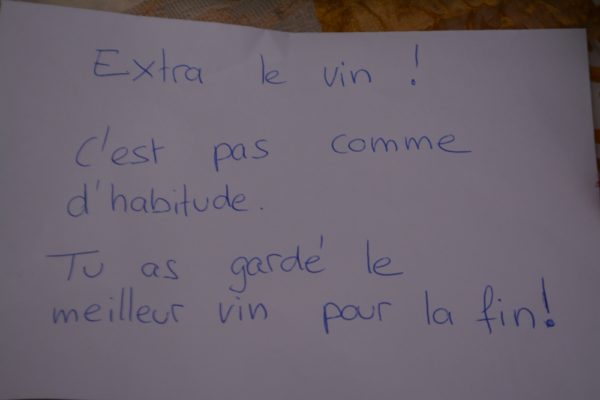 Extra le vin !
C'est pas comme
d'habitude.
Tu as gardé le
meilleur vin pour la fin!